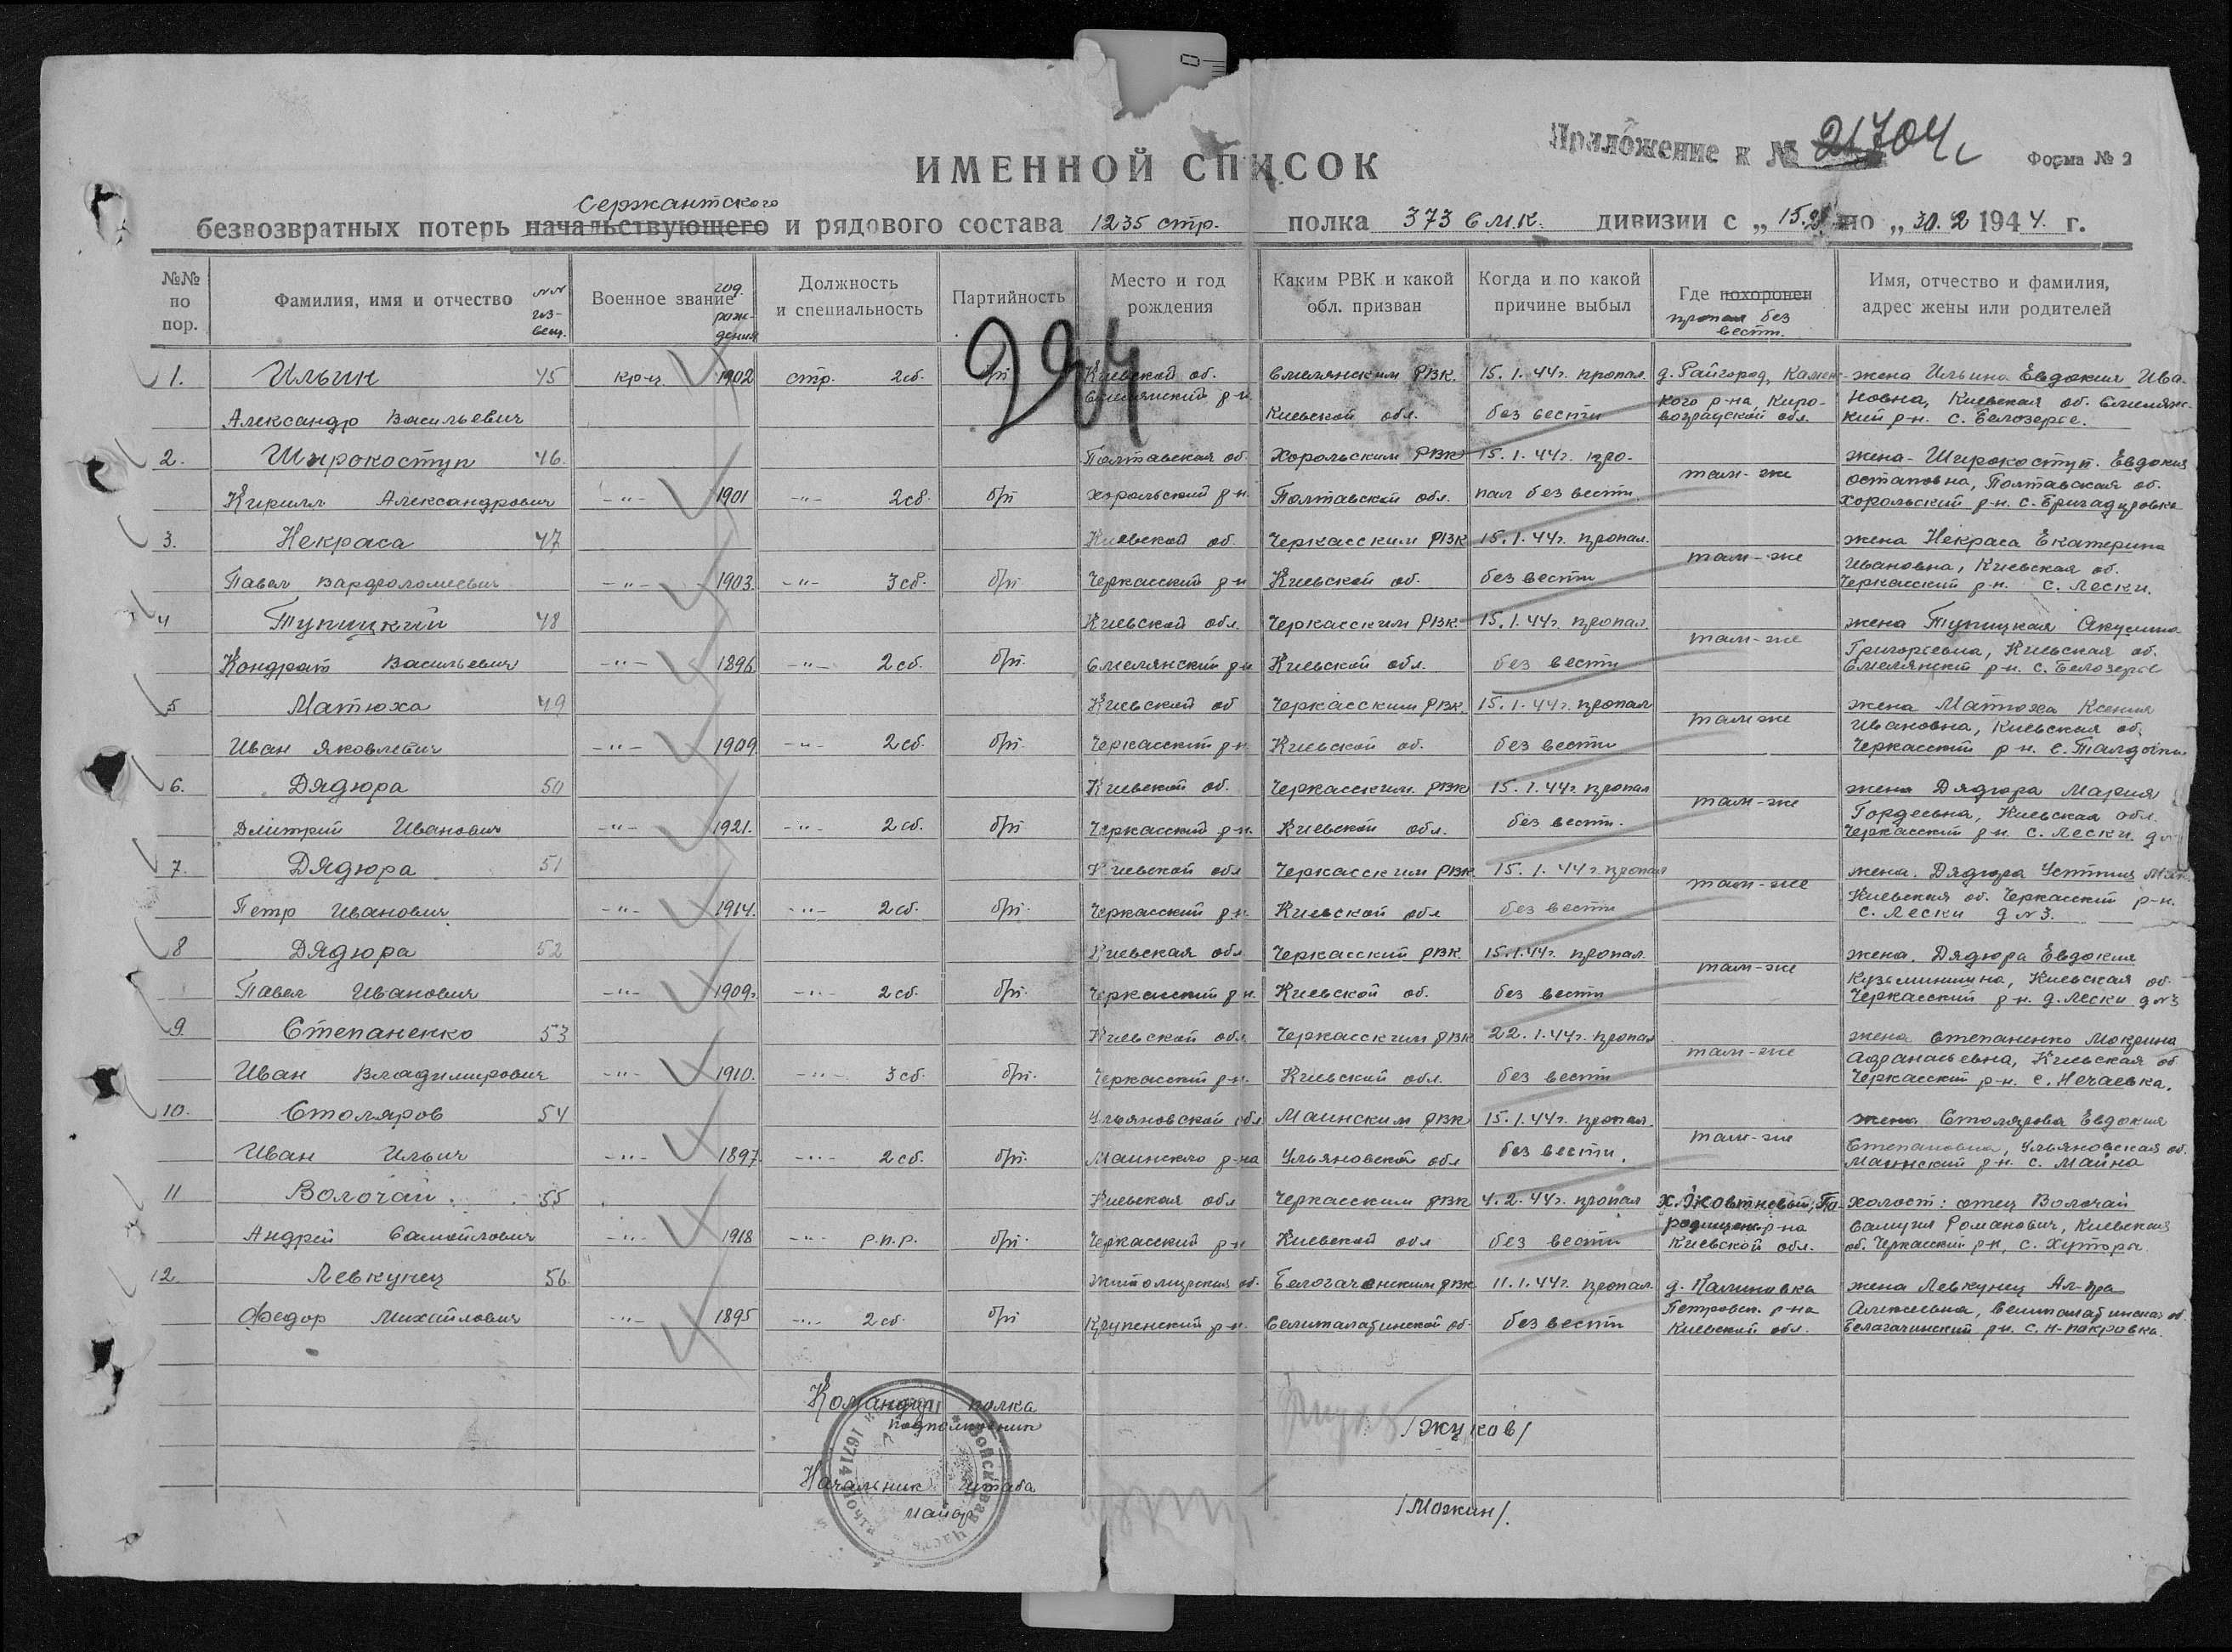 Приложение к № 21704с
Форма № 2
ИМЕННОЙ СПИСОК
Сержантского
безвозвратных потерь начальствующего и рядового состава 1235 стр. полка 373 дивизии с „15. по „30.2 1944. г.
№№ по пор.
Фамилия, имя и отчество
№№ из-вещ.
Военное звание
год рож-дения
Должность и специальность
Партийность
Место и год рождения
Каким РВК и какой обл. призван
Когда и по какой причине выбыл
Где похоронен
пропал без вести.
Имя, отчество и фамилия, адрес жены или родителей
294
1. Ильин 45 кр-ц 1902 стр. 2сб. б/п Киевской об. Смелянским РВК. 15.1.44г. пропал д. Райгород, Камен- жена Ильина Евдокия Ива-
Смелянский р-н. кого р-на, Киро- новна, Киевская об. Смелянс-
Александр Васильевич Киевской обл. без вести воградской обл. кий р-н. с. Белозерье.
2. Широкоступ 46. Полтавская об. Хорольским РВК 15.1.44г. про- жена - Широкоступ. Евдокия
там-же Остаповна, Полтавская об.
Кирилл Александрович -"- 1901 -"- 2сб. б/п Хорольский р-н. Полтавской обл. пал без вести. Хорольский р-н. с. Бригадировка
3. Некраса 47 Киевской об. Черкасским РВК 15.1.44г. пропал. жена Некраса Екатерина
там-же Ивановна, Киевская об.
Павел Варфоломеевич -"- 1903. -"- 3сб. б/п. Черкасский р-н Киевской об. без вести Черкасский р-н. с. Лески.
4 Тупицкий 48 Киевской обл. Черкасским РВК. 15.1.44г. пропал. жена Тупицкая Акулина
там-же Григорьевна, Киевская об.
Кондрат Васильевич -"- 1896 -"- 2сб. б/п. Смелянский р-н Киевской обл. без вести Смелянский р-н. с. Белозерье
5 Матюха 49 Киевской об Черкасским РВК. 15.1.44г. пропал жена Матюха Ксения
там же Ивановна, Киевская об.
Иван Яковлевич -"- 1909 -"- 2сб. б/п. Черкасский р-н. Киевской об. без вести Черкасский р-н. с.
6. Дядюра 50 Киевской об. Черкасским РВК 15.1.44г. пропал жена Дядюра Мария
там-же Гордеевна, Киевская обл.
Дмитрий Иванович -"- 1921. -"- 2сб. б/п Черкасский р-н. Киевской обл. без вести. Черкасский р-н. с. Лески
7. Дядюра 51 Киевской обл Черкасским РВК 15.1.44г. пропал жена. Дядюра
там-же Киевская об. Черкасский р-н.
Петр Иванович -"- 1914. -"- 2сб. б/п. Черкасский р-н. Киевской обл без вести с. Лески д №3.
8 Дядюра 52 Киевская обл Черкасский РВК 15.1.44г. пропал. жена. Дядюра Евдокия
там-же Кузьминишна, Киевская об.
Павел Иванович -"- 1909г. -"- 2сб. б/п. Черкасский р-н. Киевской об. без вести Черкасский р-н. д. Лески д №3
9. Степаненко 53 Киевской обл. Черкасским РВК 22.1.44г. пропал жена Степаненко Мокрина
там-же Афанасьевна, Киевская об
Иван Владимирович -"- 1910. -"- 3сб. б/п. Черкасский р-н. Киевской обл. без вести Черкасский р-н. с. Нечаевка.
10. Столяров 54 Ульяновской обл Маинским РВК 15.1.44г. пропал. жена Столярова Евдокия
там-же Степановна, Ульяновская об.
Иван Ильич -"- 1897. -"- 2сб. б/п. Маинского р-на Ульяновской обл без вести. Маинский р-н. с. Майна
11 Волочай. 55 Киевская обл Черкасским РВК 4.2.44г. пропал х. Жовтневый, Го- холост: отец Волочай
родищен. р-на Самуил Романович, Киевская
Андрей Самойлович -"- 1918 -"- р.п.р. б/п. Черкасский р-н Киевской обл без вести Киевской обл. об. Черкасский р-н, с. Хутора
12 Левкунец 56 Житомирская об. Белогаченским РВК 11.1.44г. пропал. д. Калиновка жена Левкунец Ал-дра
Петровск. р-на Алексеевна, Семипалатинская об.
Федор Михайлович -"- 1895 -"- 2сб. б/п р-н. Семипалатинской об. без вести Киевской обл. Белагачинский р-н. с. Н-покровка.
Командир полка
подполковник /Жуков/
Начальник штаба
майор /Мажин/.
Войсковая часть 16714 почта